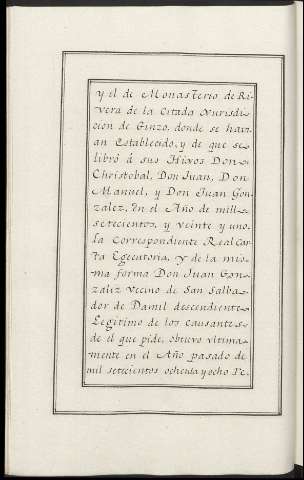 y el de Monasterio de Ri-
vera de la Citada Xurisdi-
cion de Ginzo, donde se havi-
an Establecido, y de que se
libró á sus Hixos Don
Christobal, Don Juan, Don
Manuel, y Don Juan Gon-
zalez, en el Año de mill
setecientos, y veinte y uno.
la Correspondiente Real Car-
ta Egecutoria, y de la mis-
ma forma Don Juan Gon-
zaliz Vecino de San Salba-
dor de Damil descendiente
Legitimo de los causantes
de el que pide, obtuvo ultima-
mente en el Año pasado de
mil setecientos ochenta y ocho Rl.